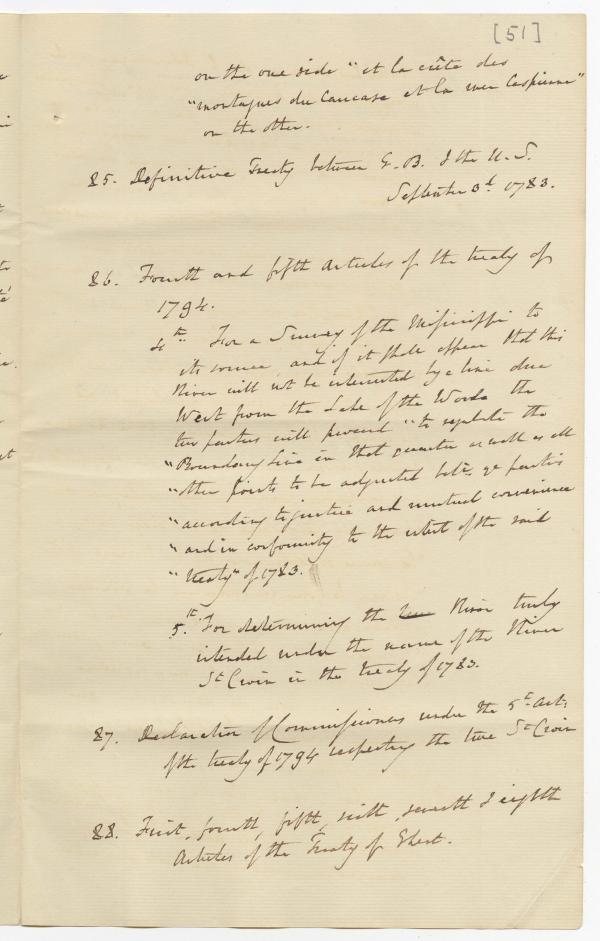 [51]
on the one side "et la crête des
"montagnes du Caucase et la mer Caspienne"
on the other.
85. Definitive Treaty between G. B. & the U. S.
September 3d 1783.
86. Fourth and fifth Articles of the treaty of
1794.
4th For a Survey of the Mississippi to
its source, and if it shall appear that this
River will not be intersected by a line due
West from the Lake of the Woods the
two parties will proceed "to regulate the
"Boundary Line in that quarter as well as all
"other points to be adjusted betn ye parties
"according to justice and mutual convenience
"and in conformity to the intent of the said
"treaty" of 1783.
5th For determining the River truly
intended under the name of the River
St Croix in the treaty of 1783.
87. Declaration of Commissioners under the 5th Art:
of the treaty of 1794 respecting the true St Croix
88. First, fourth, fifth, sixth, seventh & eighth
Articles of the Treaty of Ghent.